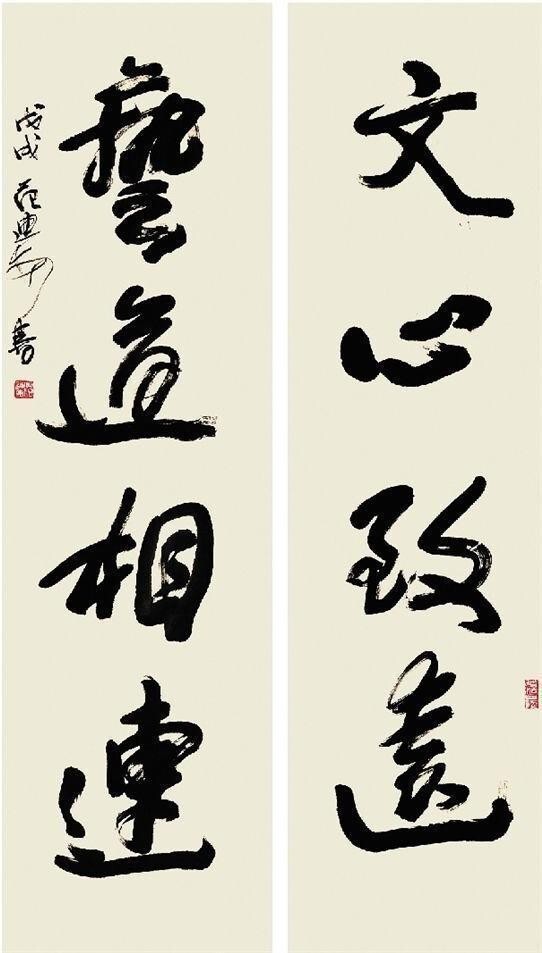 文心致遠
藝道相連
戊戌 范迪安 書